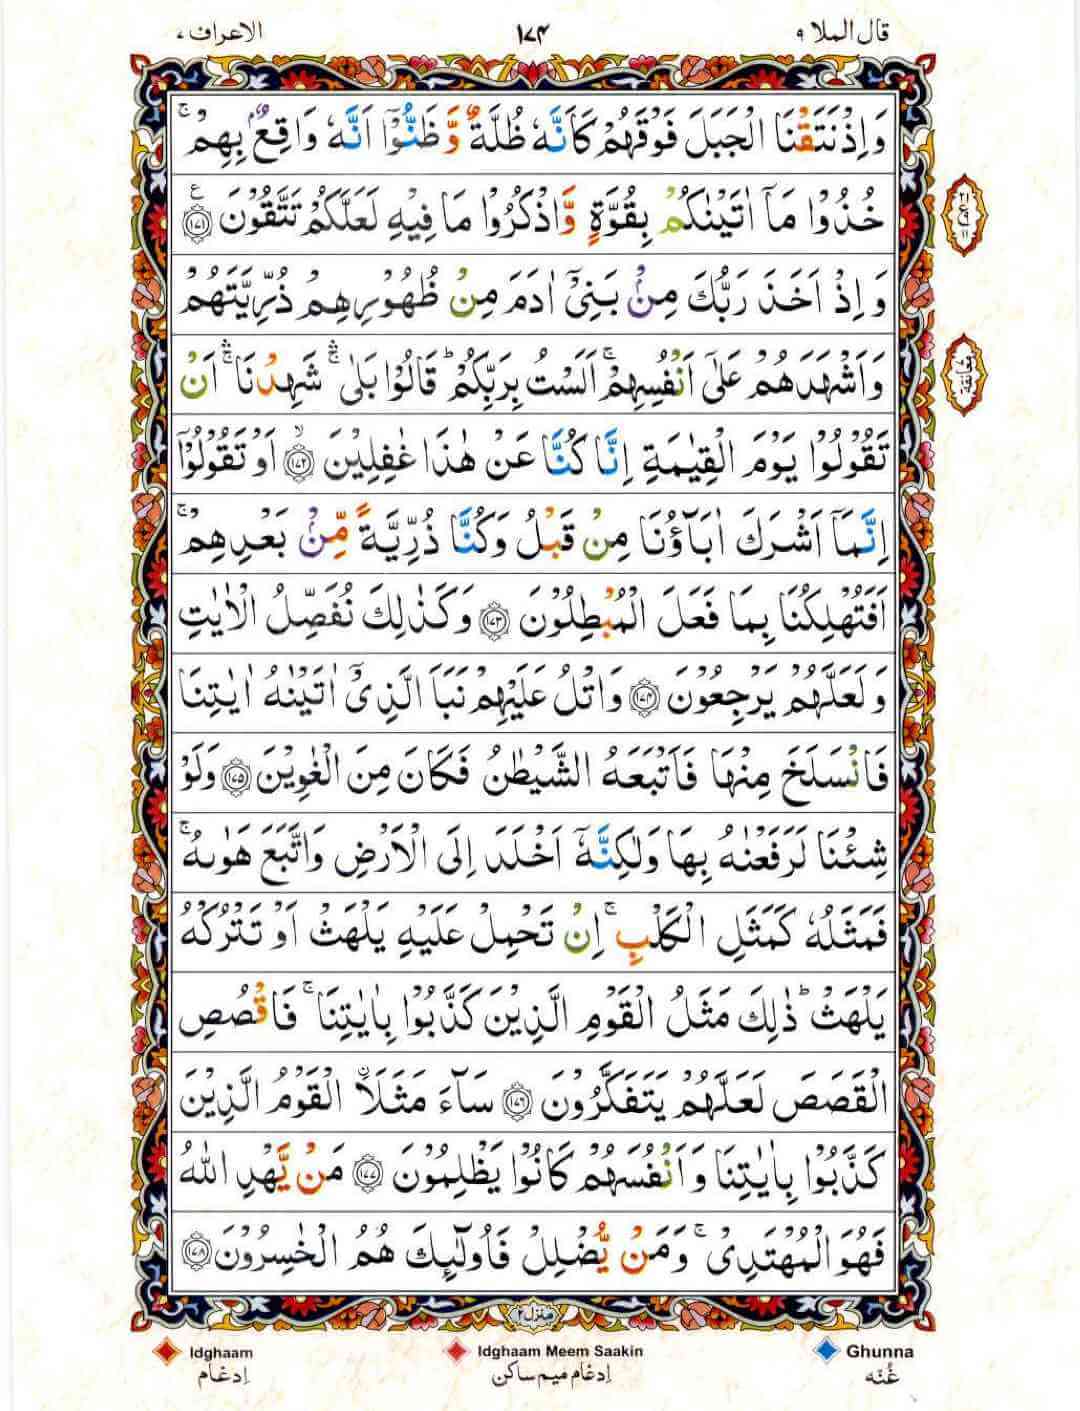 قال الملا ۹
۱۷۴
الاعراف ۷
وَاِذْ نَتَقْنَا الْجَبَلَ فَوْقَهُمْ كَاَنَّهٗ ظُلَّةٌ وَّظَنُّوْۤا اَنَّهٗ وَاقِعٌۢ بِهِمْ ۚ
خُذُوْا مَاۤ اٰتَيْنٰكُمْ بِقُوَّةٍ وَّاذْكُرُوْا مَا فِيْهِ لَعَلَّكُمْ تَتَّقُوْنَ ﴿۱۷۱﴾ ع
وَاِذْ اَخَذَ رَبُّكَ مِنْۢ بَنِيْۤ اٰدَمَ مِنْ ظُهُوْرِهِمْ ذُرِّيَّتَهُمْ
وَاَشْهَدَهُمْ عَلٰۤى اَنْفُسِهِمْ ۚ اَلَسْتُ بِرَبِّكُمْ ؕ قَالُوْا بَلٰى ۛۚ شَهِدْنَا ۛۚ اَنْ
معانقة
تَقُوْلُوْا يَوْمَ الْقِيٰمَةِ اِنَّا كُنَّا عَنْ هٰذَا غٰفِلِيْنَ ﴿۱۷۲﴾ ۙ اَوْ تَقُوْلُوْۤا
اِنَّمَاۤ اَشْرَكَ اٰبَآؤُنَا مِنْ قَبْلُ وَكُنَّا ذُرِّيَّةً مِّنْۢ بَعْدِهِمْ ۚ
اَفَتُهْلِكُنَا بِمَا فَعَلَ الْمُبْطِلُوْنَ ﴿۱۷۳﴾ وَكَذٰلِكَ نُفَصِّلُ الْاٰيٰتِ
وَلَعَلَّهُمْ يَرْجِعُوْنَ ﴿۱۷۴﴾ وَاتْلُ عَلَيْهِمْ نَبَاَ الَّذِيْۤ اٰتَيْنٰهُ اٰيٰتِنَا
فَانْسَلَخَ مِنْهَا فَاَتْبَعَهُ الشَّيْطٰنُ فَكَانَ مِنَ الْغٰوِيْنَ ﴿۱۷۵﴾ وَلَوْ
شِئْنَا لَرَفَعْنٰهُ بِهَا وَلٰكِنَّهٗۤ اَخْلَدَ اِلَى الْاَرْضِ وَاتَّبَعَ هَوٰىهُ ۚ
فَمَثَلُهٗ كَمَثَلِ الْكَلْبِ ۚ اِنْ تَحْمِلْ عَلَيْهِ يَلْهَثْ اَوْ تَتْرُكْهُ
يَلْهَثْ ؕ ذٰلِكَ مَثَلُ الْقَوْمِ الَّذِيْنَ كَذَّبُوْا بِاٰيٰتِنَا ۚ فَاقْصُصِ
الْقَصَصَ لَعَلَّهُمْ يَتَفَكَّرُوْنَ ﴿۱۷۶﴾ سَآءَ مَثَلَاۨ الْقَوْمُ الَّذِيْنَ
كَذَّبُوْا بِاٰيٰتِنَا وَاَنْفُسَهُمْ كَانُوْا يَظْلِمُوْنَ ﴿۱۷۷﴾ مَنْ يَّهْدِ اللّٰهُ
فَهُوَ الْمُهْتَدِيْ ۚ وَمَنْ يُّضْلِلْ فَاُولٰٓئِكَ هُمُ الْخٰسِرُوْنَ ﴿۱۷۸﴾
منزل ۲
Idghaam
Idghaam Meem Saakin
Ghunna
اِدغام
اِدغام میم ساکن
غُنّه